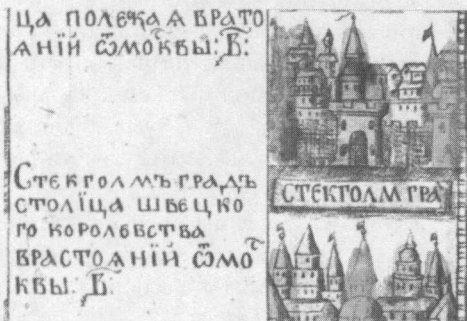 ца полскаѧ врасто
ѧнїй ѿ мо̑квы: в҃:
Стекголмъ градъ
столїца швецко
го королевства
врастоѧнїй ѿ мо̑
квы: в҃:
СТЕКГОЛМ ГРА